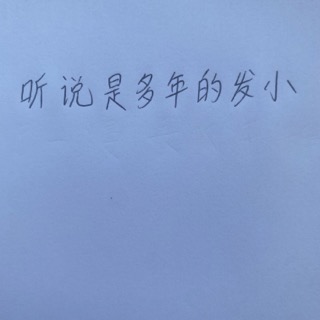 听说是多年的发小